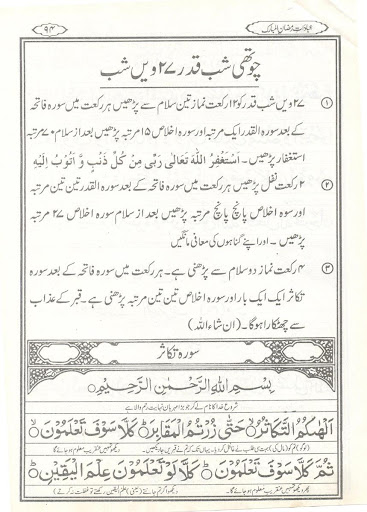 عبادت رمضان المبارک
۹۴
چوتھی شب قدر ۲۷ ویں شب
① ۲۷ ویں شب قدر کو ۱۲ رکعت نماز تین سلام سے پڑھیں ہر رکعت میں سورہ فاتحہ
کے بعد سورہ القدر ایک مرتبہ اور سورہ اخلاص ۱۵ مرتبہ پڑھیں بعد از سلام ۷۰ مرتبہ
استغفار پڑھیں۔ اَسْتَغْفِرُ اللّٰهَ تَعَالٰی رَبِّی مِنْ کُلِّ ذَنْبٍ وَّ اَتُوْبُ اِلَیْهِ
② ۲ رکعت نفل پڑھیں ہر رکعت میں سورہ فاتحہ کے بعد سورہ القدر تین تین مرتبہ
اور سوہ اخلاص پانچ پانچ مرتبہ پڑھیں بعد از سلام سورہ اخلاص ۲۷ مرتبہ
پڑھیں ۔ اور اپنے گناہوں کی معافی مانگیں
③ ۴ رکعت نماز دو سلام سے پڑھنی ہے۔ ہر رکعت میں سورہ فاتحہ کے بعد سورہ
تکاثر ایک ایک بار اور سورہ اخلاص تین تین مرتبہ پڑھنی ہے۔ قبر کے عذاب
سے چھٹکارا ہوگا۔ (ان شاء اللہ)
سورہ تکاثر
بِسْمِ اللّٰهِ الرَّحْمٰنِ الرَّحِیْمِ
شروع خدا کا نام لے کر جو بڑا مہربان نہایت رحم والا ہے
اَلْهٰىكُمُ التَّكَاثُرُ حَتّٰى زُرْتُمُ الْمَقَابِرَ كَلَّا سَوْفَ تَعْلَمُوْنَ
ثُمَّ كَلَّا سَوْفَ تَعْلَمُوْنَ كَلَّا لَوْ تَعْلَمُوْنَ عِلْمَ الْیَقِیْنِ